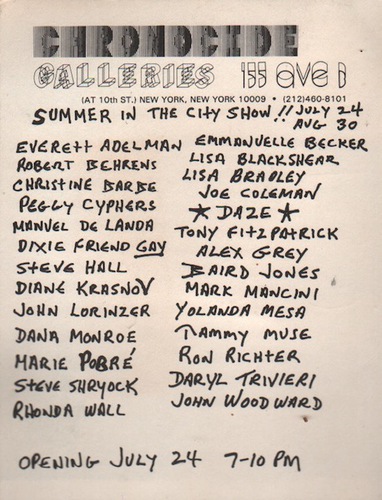 CHRONOCIDE
GALLERIES 155 ave B
(AT 10th ST.) NEW YORK, NEW YORK 10009 • (212)460-8101
SUMMER IN THE CITY SHOW!! JULY 24
AUG 30
EVERETT ADELMAN
ROBERT BEHRENS
CHRISTINE BARBE
PEGGY CYPHERS
MANVEL DE LANDA
DIXIE FRIEND GAY
STEVE HALL
DIANE KRASNOV
JOHN LORINZER
DANA MONROE
MARIE POBRÉ
STEVE SHRYOCK
RHONDA WALL
EMMANUELLE BECKER
LISA BLACKSHEAR
LISA BRADLEY
JOE COLEMAN
★ DAZE ★
TONY FITZPATRICK
ALEX GREY
BAIRD JONES
MARK MANCINI
YOLANDA MESA
TAMMY MUSE
RON RICHTER
DARYL TRIVIERI
JOHN WOODWARD
OPENING JULY 24 7-10 PM